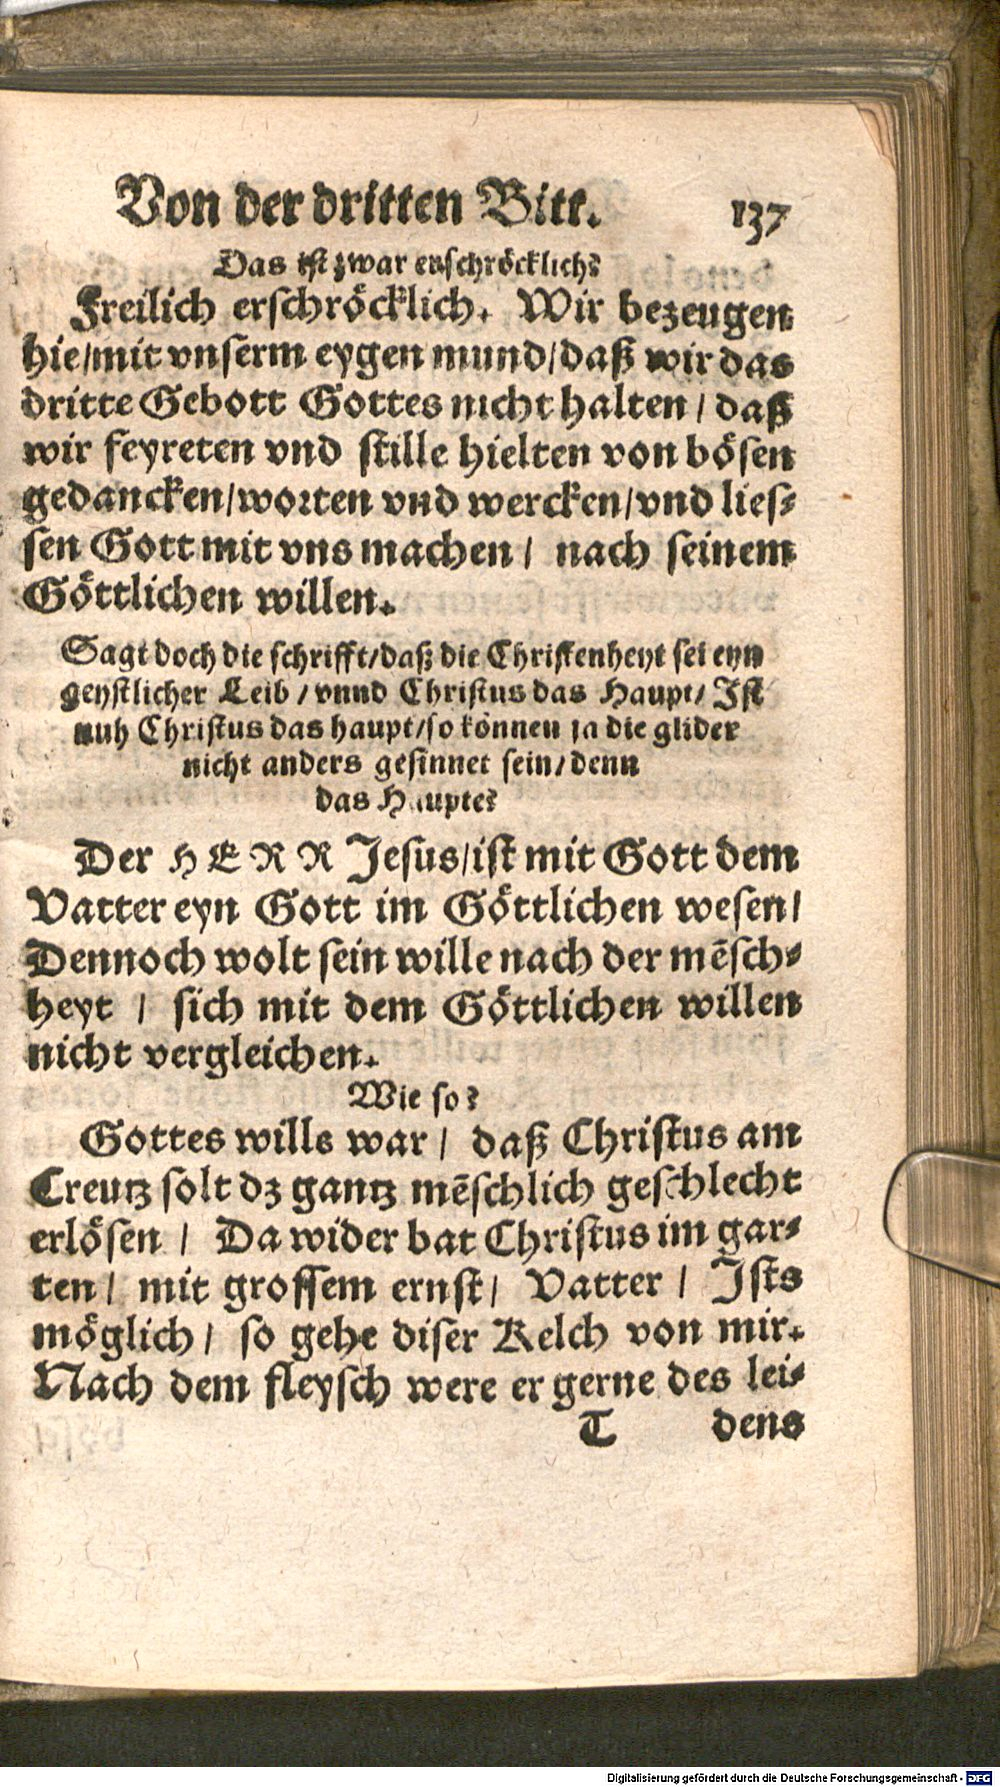 Von der dritten Bitt. 137
Das ist zwar erschröcklich?
Freilich erschröcklich. Wir bezeugen
hie/mit vnserm eygen mund/daß wir das
dritte Gebott Gottes nicht halten / daß
wir feyreten vnd stille hielten von bösen
gedancken/worten vnd wercken/vnd lies-
sen Gott mit vns machen / nach seinem
Göttlichen willen.
Sagt doch die schrifft/daß die Christenheyt sei eyn
geystlicher Leib / vnnd Christus das Haupt/ Ist
nuh Christus das haupt/so können ja die glider
nicht anders gesinnet sein/denn
das Haupte?
Der HERR Jesus/ist mit Gott dem
Vatter eyn Gott im Göttlichen wesen/
Dennoch wolt sein wille nach der mẽsch-
heyt / sich mit dem Göttlichen willen
nicht vergleichen.
Wie so?
Gottes wills war / daß Christus am
Creutz solt dz gantz mẽschlich geschlecht
erlösen / Da wider bat Christus im gar-
ten / mit grossem ernst / Vatter / Ists
möglich / so gehe diser Kelch von mir.
Nach dem fleysch were er gerne des lei-
T dens
Digitalisierung gefördert durch die Deutsche Forschungsgemeinschaft - DFG